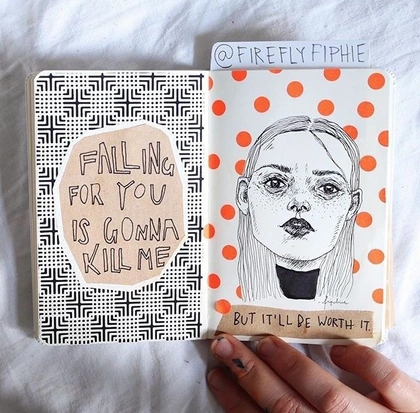 @FIREFLYFIPHIE
FALLING
FOR YOU
IS GONNA
KILL ME
fiphie
BUT IT'LL BE WORTH IT.